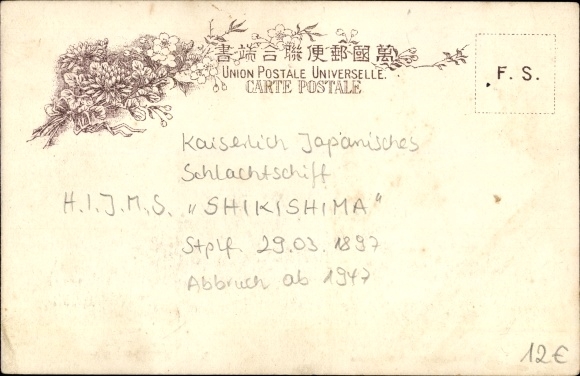 萬國郵便聯合端書
UNION POSTALE UNIVERSELLE.
CARTE POSTALE
F. S.
Kaiserlich Japanisches
Schlachtschiff
H.I.J.M.S. „SHIKISHIMA"
Stplf. 29.03.1897
Abbruch ab 1947
12€